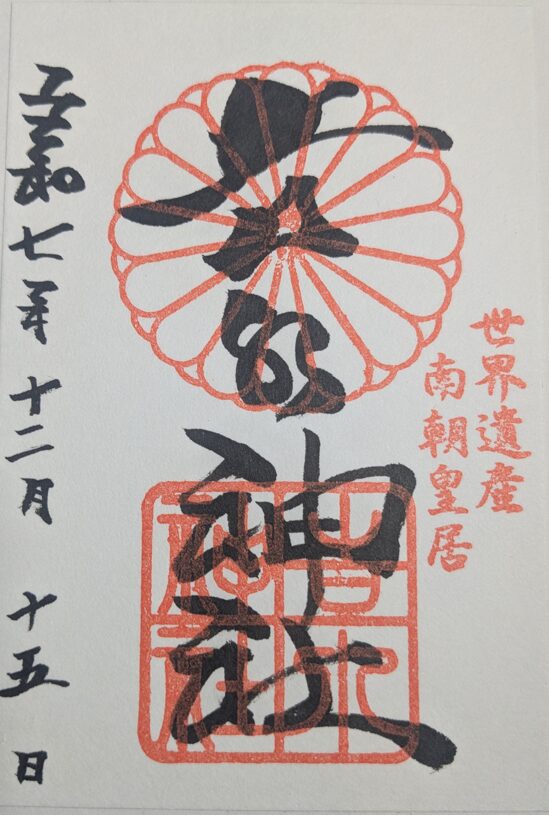 世界遺産
南朝皇居
吉水神社
吉水
神社
令和七年十二月十五日